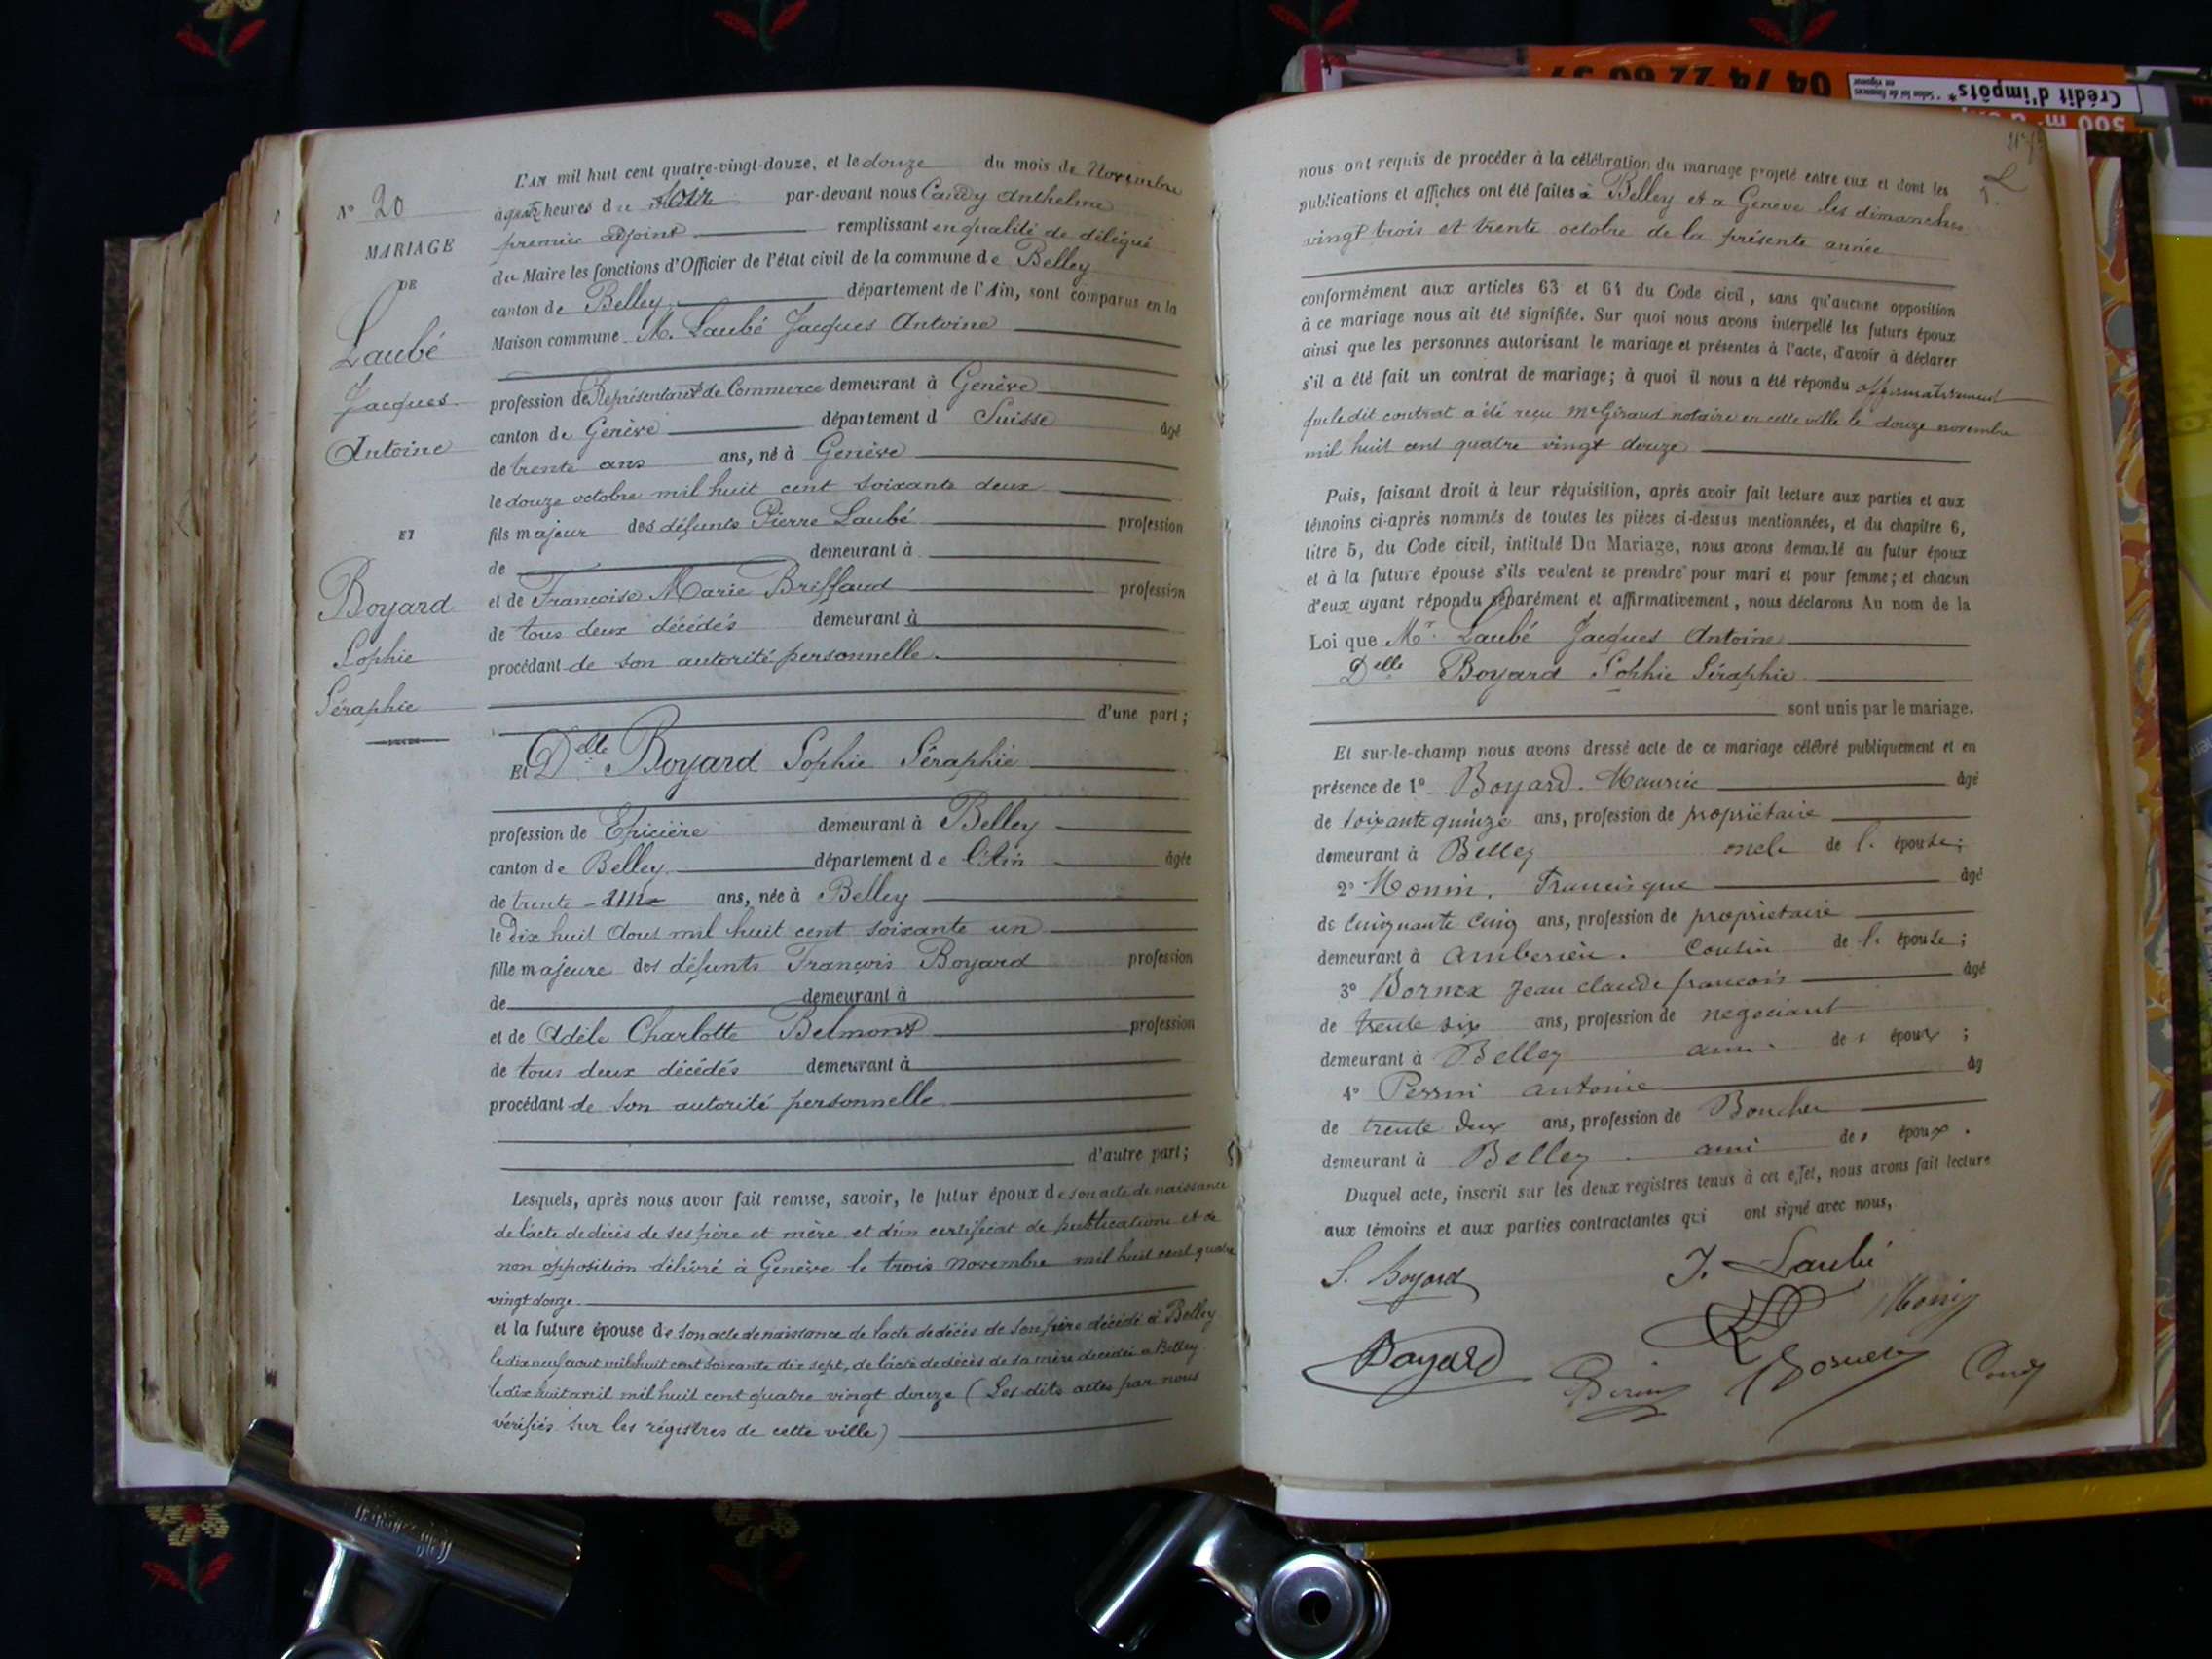 N° 20
MARIAGE
DE
Laubé
Jacques
Antoine
ET
Boyard
Sophie
Séraphie
L'AN mil huit cent quatre-vingt-douze, et le douze du mois de Novembre
à heures du soir par-devant nous Candy Anthelme
premier adjoint remplissant en qualité de délégué
du Maire les fonctions d'Officier de l'état civil de la commune de Belley
canton de Belley département de l'Ain, sont comparus en la
Maison commune M. Laubé Jacques Antoine
profession de Représentant de Commerce demeurant à Genève
canton de Genève département d Suisse âgé
de trente ans ans, né à Genève
le douze octobre mil huit cent soixante deux
fils majeur des défunts Pierre Laubé profession
de demeurant à
et de Françoise Marie Briffaud profession
de tous deux décédés demeurant à
procédant de son autorité personnelle.
d'une part;
Et Delle Boyard Sophie Séraphie
profession de Epicière demeurant à Belley
canton de Belley département de l'Ain âgée
de trente-un ans, née à Belley
le Dix huit Aout mil huit cent soixante un
fille majeure des défunts François Boyard profession
de demeurant à
et de Adèle Charlotte Belmont profession
de tous deux décédés demeurant à
procédant de son autorité personnelle
d'autre part;
Lesquels, après nous avoir fait remise, savoir, le futur époux de son acte de naissance
de l'acte de décès de ses père et mère et d'un certificat de publication et de
non opposition délivré à Genève le trois novembre mil huit cent quatre
vingt douze
et la future épouse de son acte de naissance de l'acte de décès de son père décédé à Belley
le dix neuf aout mil huit cent soixante dix sept, de l'acte de décès de sa mère décédée à Belley
le dix huit avril mil huit cent quatre vingt douze (Les dits actes par nous
vérifiés sur les régistres de cette ville)
nous ont requis de procéder à la célébration du mariage projeté entre eux et dont les
publications et affiches ont été faites à Belley et a Genève les dimanches
vingt trois et trente octobre de la présente année
conformément aux articles 63 et 64 du Code civil, sans qu'aucune opposition
à ce mariage nous ait été signifiée. Sur quoi nous avons interpellé les futurs époux
ainsi que les personnes autorisant le mariage et présentes à l'acte, d'avoir à déclarer
s'il a été fait un contrat de mariage; à quoi il nous a été répondu affirmativement
que le dit contrat a été reçu Me Giraud notaire en cette ville le douze novembre
mil huit cent quatre vingt douze
Puis, faisant droit à leur réquisition, après avoir fait lecture aux parties et aux
témoins ci-après nommés de toutes les pièces ci-dessus mentionnées, et du chapitre 6,
titre 5, du Code civil, intitulé Du Mariage, nous avons demandé au futur époux
et à la future épouse s'ils veulent se prendre pour mari et pour femme; et chacun
d'eux ayant répondu séparément et affirmativement, nous déclarons Au nom de la
Loi que Mr. Laubé Jacques Antoine
Delle Boyard Sophie Séraphie
sont unis par le mariage.
Et sur-le-champ nous avons dressé acte de ce mariage célébré publiquement et en
présence de 1° Boyard Maurice âgé
de soixante quinze ans, profession de propriétaire
demeurant à Belley oncle de l. épouse;
2° Monin. Francisque âgé
de cinquante cinq ans, profession de propriétaire
demeurant à Amberieu. Cousin de l. épouse;
3° Bornex Jean claude françois âgé
de trente six ans, profession de negociant
demeurant à Belley ami des époux;
4° Perrin Antoine âg
de trente deux ans, profession de Boucher
demeurant à Belley. ami des époux.
Duquel acte, inscrit sur les deux registres tenus à cet effet, nous avons fait lecture
aux témoins et aux parties contractantes qui ont signé avec nous,
S. Boyard J. Laubé
Monin
Boyard Perrin Bornex Candy
04 74 22 60 37
Crédit d'impôts*
* Selon loi de finances
en vigueur
500 m²